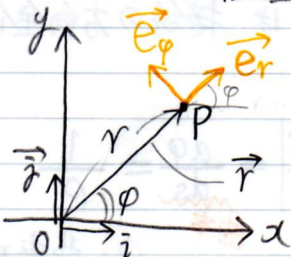 y
e⃗φ
e⃗r
φ
P
r
r⃗
j⃗
φ
O
i⃗
x